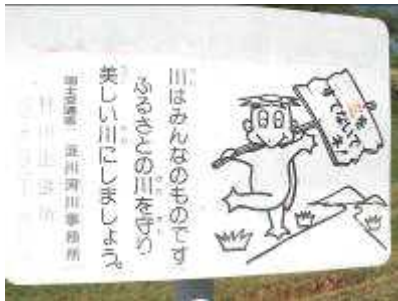 すてないで
川はみんなのものです
ふるさとの川を守り
美しい川にしましょう。
国土交通省 淀川河川事務所